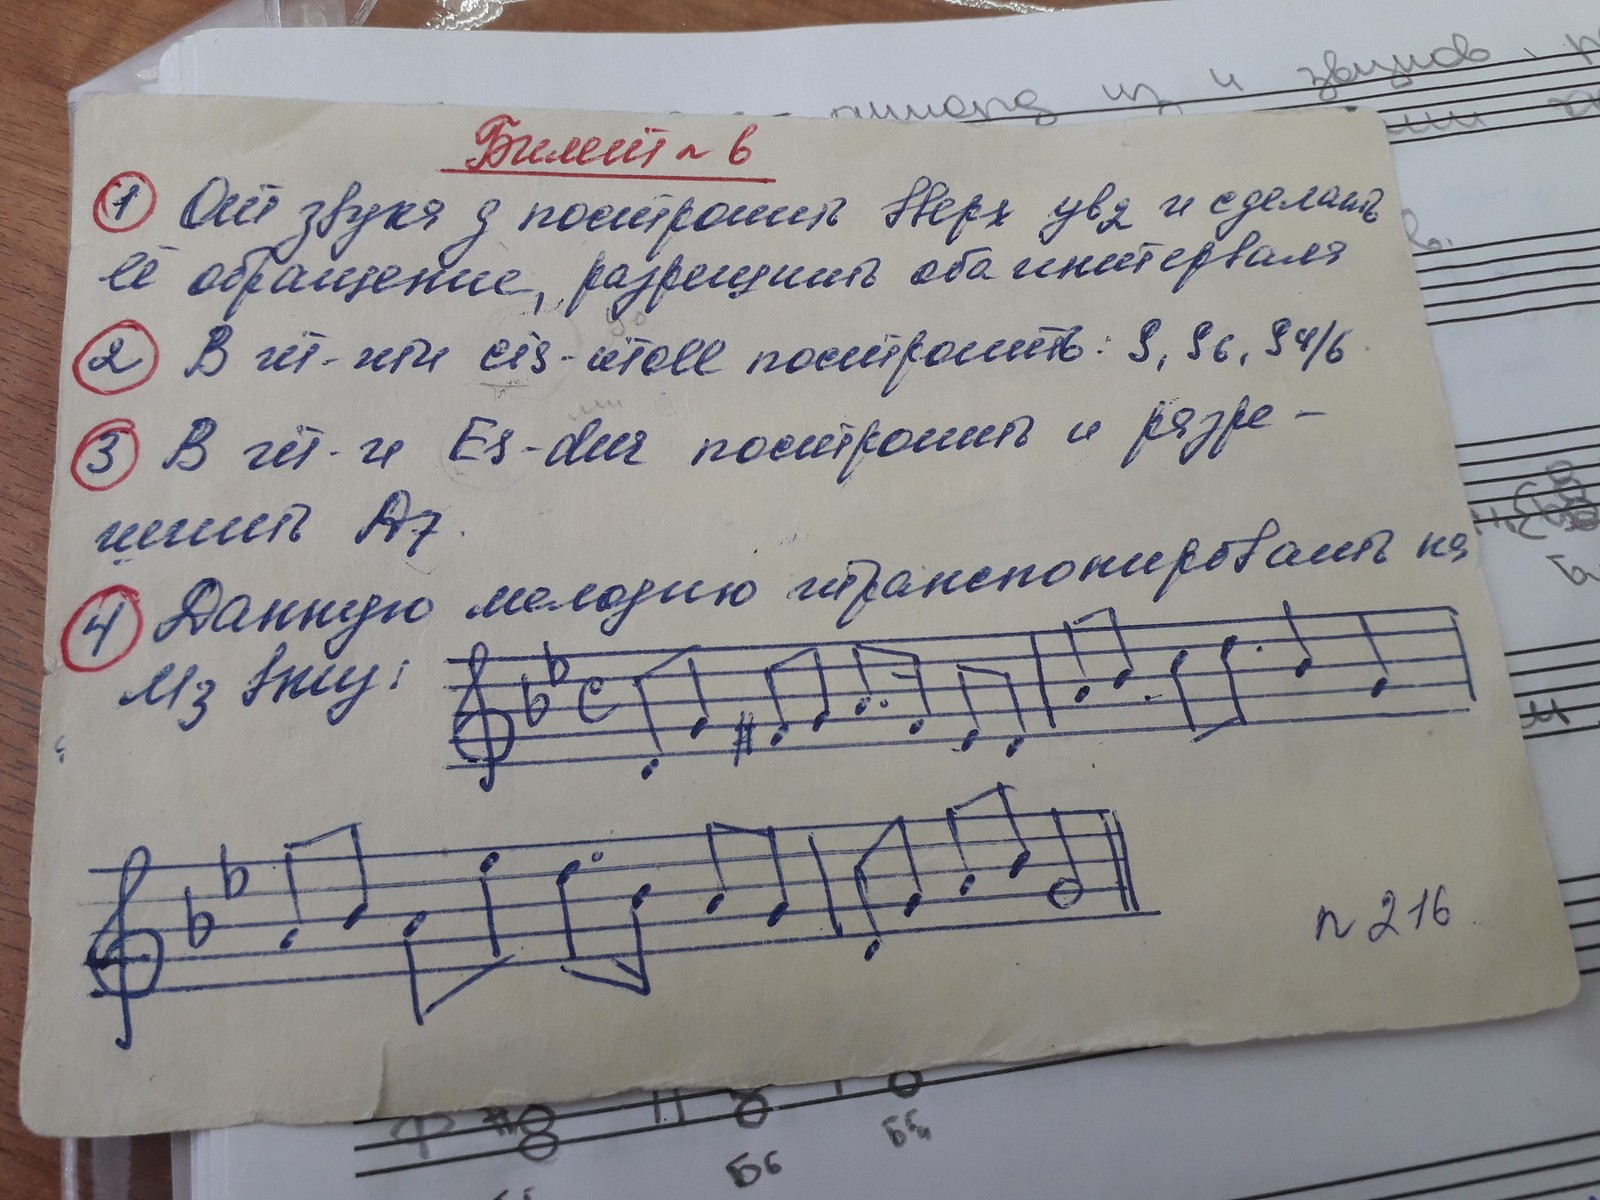 звуков,
Билет № 6
① От звука д построить вверх ув2 и сделать
её обращение, разрешить оба интервала
② В т-ти cis-moll построить: D, D6, D4/6
③ В т-и Es-dur построить и разре-
шить Д7.
④ Данную мелодию транспонировать на
м3 вниз:
C
n 216
Б6
Б6